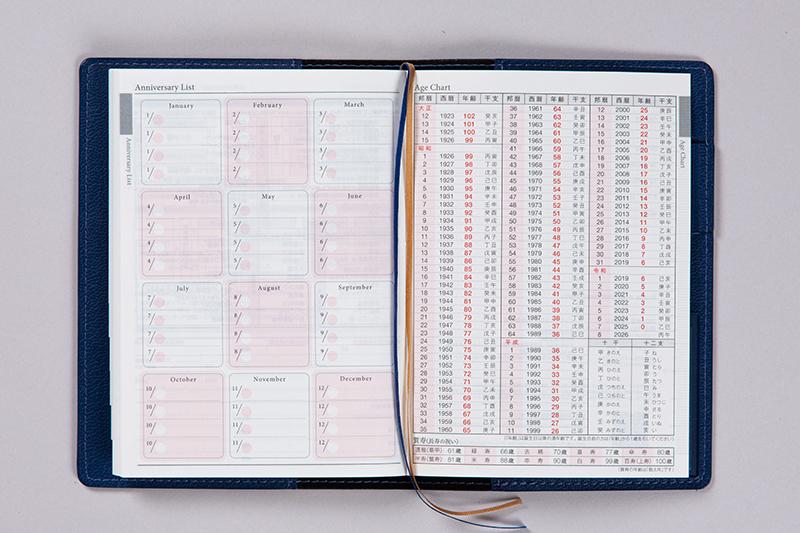 Anniversary List
Anniversary List
January
1/
1/
1/
1/
February
2/
2/
2/
2/
March
3/
3/
3/
3/
April
4/
4/
4/
4/
May
5/
5/
5/
5/
June
6/
6/
6/
6/
July
7/
7/
7/
7/
August
8/
8/
8/
8/
September
9/
9/
9/
9/
October
10/
10/
10/
10/
November
11/
11/
11/
11/
December
12/
12/
12/
12/
Age Chart
Age Chart
邦暦 西暦 年齢 干支
大正
12 1923 102 癸亥
13 1924 101 甲子
14 1925 100 乙丑
15 1926 99 丙寅
昭和
1 1926 99 丙寅
2 1927 98 丁卯
3 1928 97 戊辰
4 1929 96 己巳
5 1930 95 庚午
6 1931 94 辛未
7 1932 93 壬申
8 1933 92 癸酉
9 1934 91 甲戌
10 1935 90 乙亥
11 1936 89 丙子
12 1937 88 丁丑
13 1938 87 戊寅
14 1939 86 己卯
15 1940 85 庚辰
16 1941 84 辛巳
17 1942 83 壬午
18 1943 82 癸未
19 1944 81 甲申
20 1945 80 乙酉
21 1946 79 丙戌
22 1947 78 丁亥
23 1948 77 戊子
24 1949 76 己丑
25 1950 75 庚寅
26 1951 74 辛卯
27 1952 73 壬辰
28 1953 72 癸巳
29 1954 71 甲午
30 1955 70 乙未
31 1956 69 丙申
32 1957 68 丁酉
33 1958 67 戊戌
34 1959 66 己亥
35 1960 65 庚子
邦暦 西暦 年齢 干支
36 1961 64 辛丑
37 1962 63 壬寅
38 1963 62 癸卯
39 1964 61 甲辰
40 1965 60 乙巳
41 1966 59 丙午
42 1967 58 丁未
43 1968 57 戊申
44 1969 56 己酉
45 1970 55 庚戌
46 1971 54 辛亥
47 1972 53 壬子
48 1973 52 癸丑
49 1974 51 甲寅
50 1975 50 乙卯
51 1976 49 丙辰
52 1977 48 丁巳
53 1978 47 戊午
54 1979 46 己未
55 1980 45 庚申
56 1981 44 辛酉
57 1982 43 壬戌
58 1983 42 癸亥
59 1984 41 甲子
60 1985 40 乙丑
61 1986 39 丙寅
62 1987 38 丁卯
63 1988 37 戊辰
64 1989 36 己巳
平成
1 1989 36 己巳
2 1990 35 庚午
3 1991 34 辛未
4 1992 33 壬申
5 1993 32 癸酉
6 1994 31 甲戌
7 1995 30 乙亥
8 1996 29 丙子
9 1997 28 丁丑
10 1998 27 戊寅
11 1999 26 己卯
邦暦 西暦 年齢 干支
12 2000 25 庚辰
13 2001 24 辛巳
14 2002 23 壬午
15 2003 22 癸未
16 2004 21 甲申
17 2005 20 乙酉
18 2006 19 丙戌
19 2007 18 丁亥
20 2008 17 戊子
21 2009 16 己丑
22 2010 15 庚寅
23 2011 14 辛卯
24 2012 13 壬辰
25 2013 12 癸巳
26 2014 11 甲午
27 2015 10 乙未
28 2016 9 丙申
29 2017 8 丁酉
30 2018 7 戊戌
31 2019 6 己亥
令和
1 2019 6 己亥
2 2020 5 庚子
3 2021 4 辛丑
4 2022 3 壬寅
5 2023 2 癸卯
6 2024 1 甲辰
7 2025 0 乙巳
8 2026 丙午
十干 十二支
甲 きのえ 子 ね
乙 きのと 丑 うし
丙 ひのえ 寅 とら
丁 ひのと 卯 う
戊 つちのえ 辰 たつ
己 つちのと 巳 み
庚 かのえ 午 うま
辛 かのと 未 ひつじ
壬 みずのえ 申 さる
癸 みずのと 酉 とり
戌 いぬ
亥 い
賀寿(長寿の祝い)
還暦(華甲) 61歳 緑寿 66歳 古稀 70歳 喜寿 77歳 傘寿 80歳
半寿(盤寿) 81歳 米寿 88歳 卒寿 90歳 白寿 99歳 百寿(上寿) 100歳
(賀寿の年齢は「数え年」です)